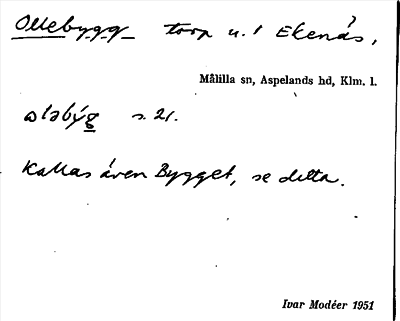 Ollebygg torp u. t Ekenäs,
Målilla sn, Aspelands hd, Klm. l.
ɷləby̆g s. 21.
Kallas även Bygget, se detta.
Ivar Modéer 1951